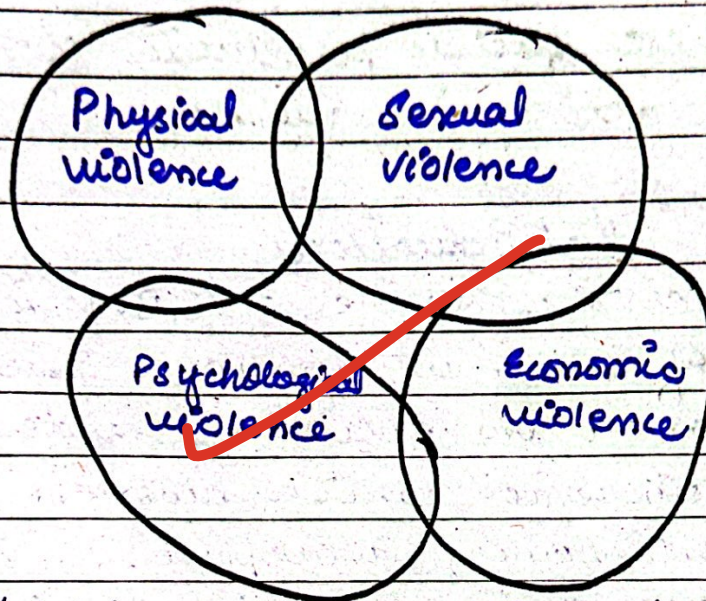 Physical
violence
Sexual
violence
Psychological
violence
Economic
violence